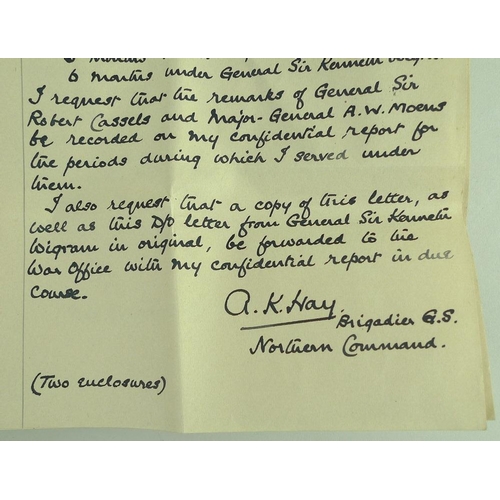 6 months under General Sir Kenneth Wigram.
I request that the remarks of General Sir
Robert Cassels and Major-General A.W. Moens
be recorded on my confidential report for
the periods during which I served under
them.
I also request that a copy of this letter, as
well as this D/O letter from General Sir Kenneth
Wigram in original, be forwarded to the
War Office with my confidential report in due
course.
A.K. Hay,
Brigadier G.S.
Northern Command.
(Two enclosures)